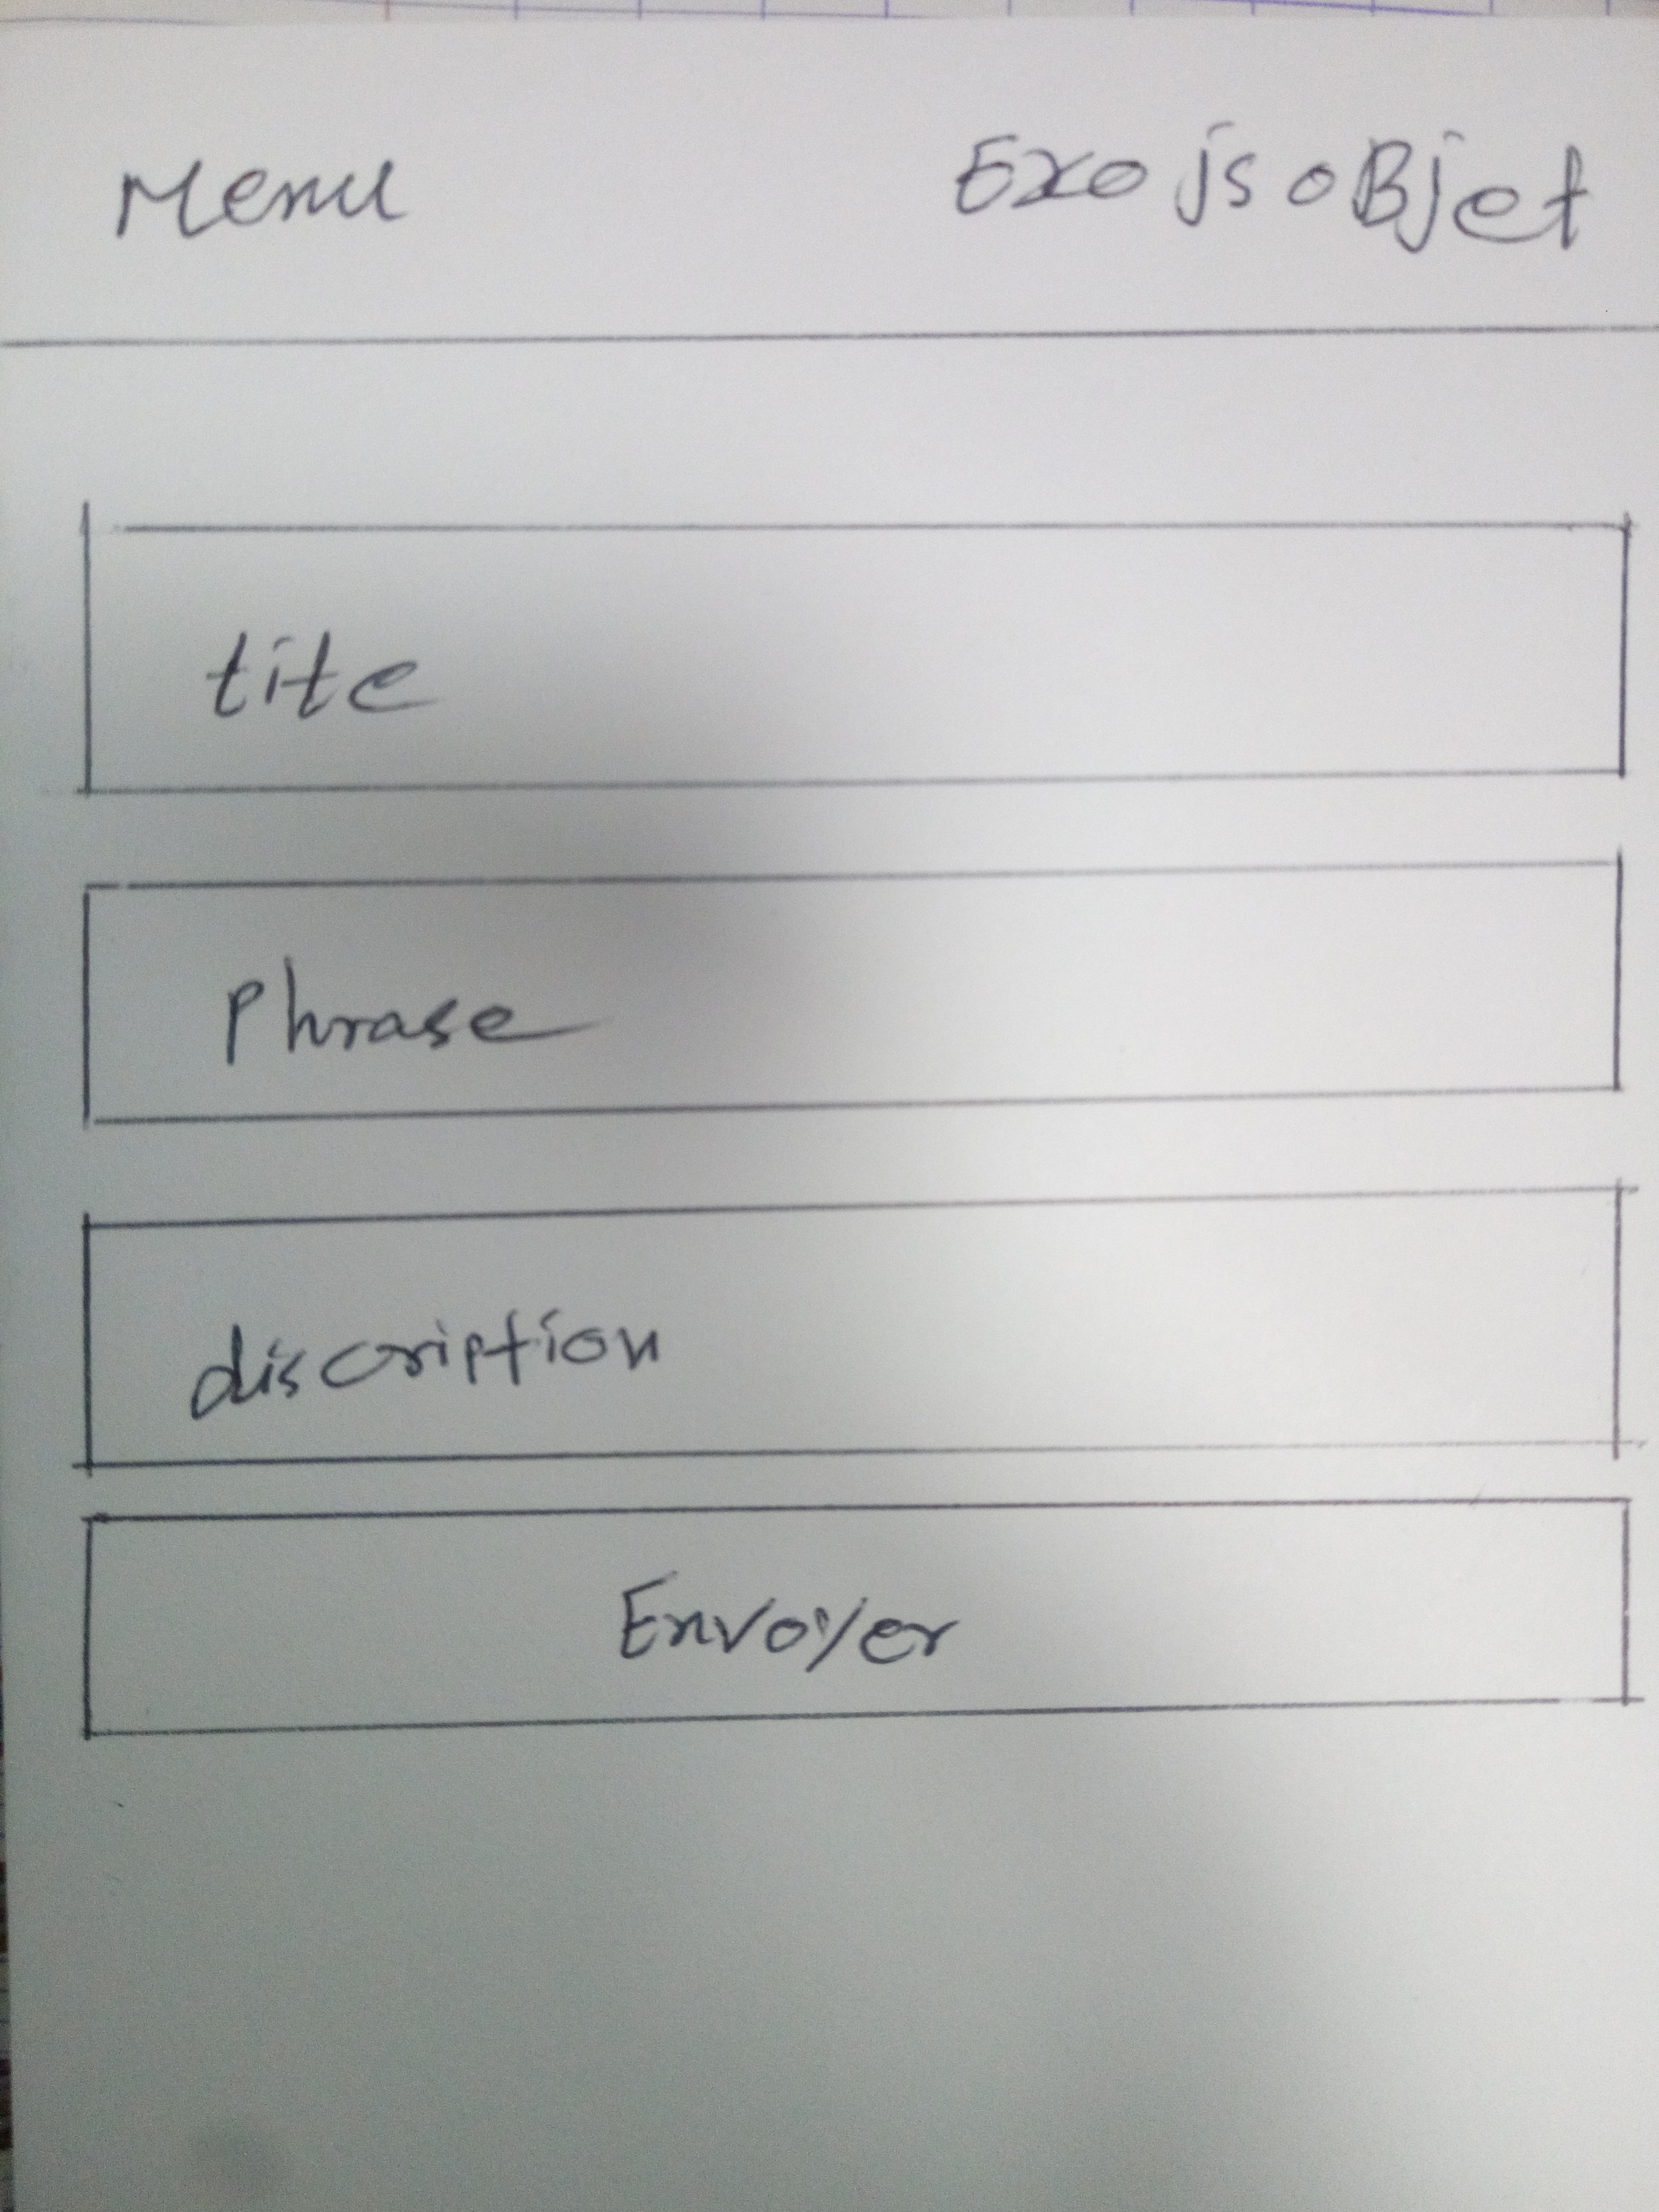 Menu Exo js oBjet
tite
Phrase
discription
Envoyer